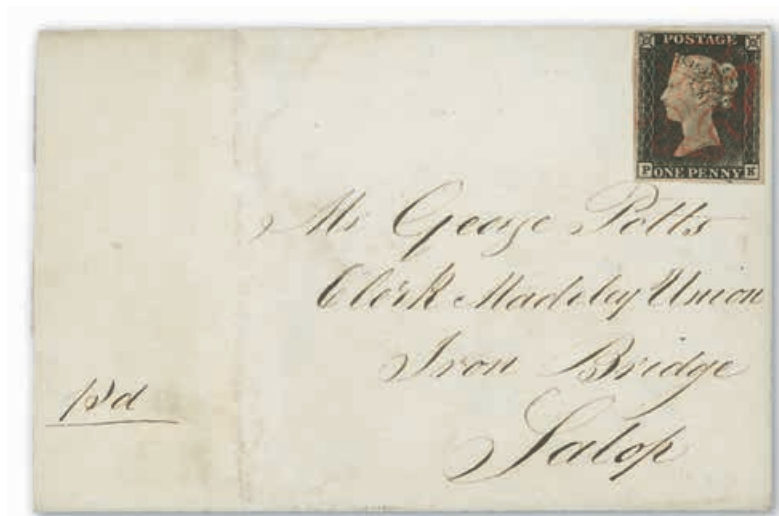 POSTAGE
P ONE PENNY K
Mr George Potts
Clerk Madeley Union
Iron Bridge
Salop
Pd